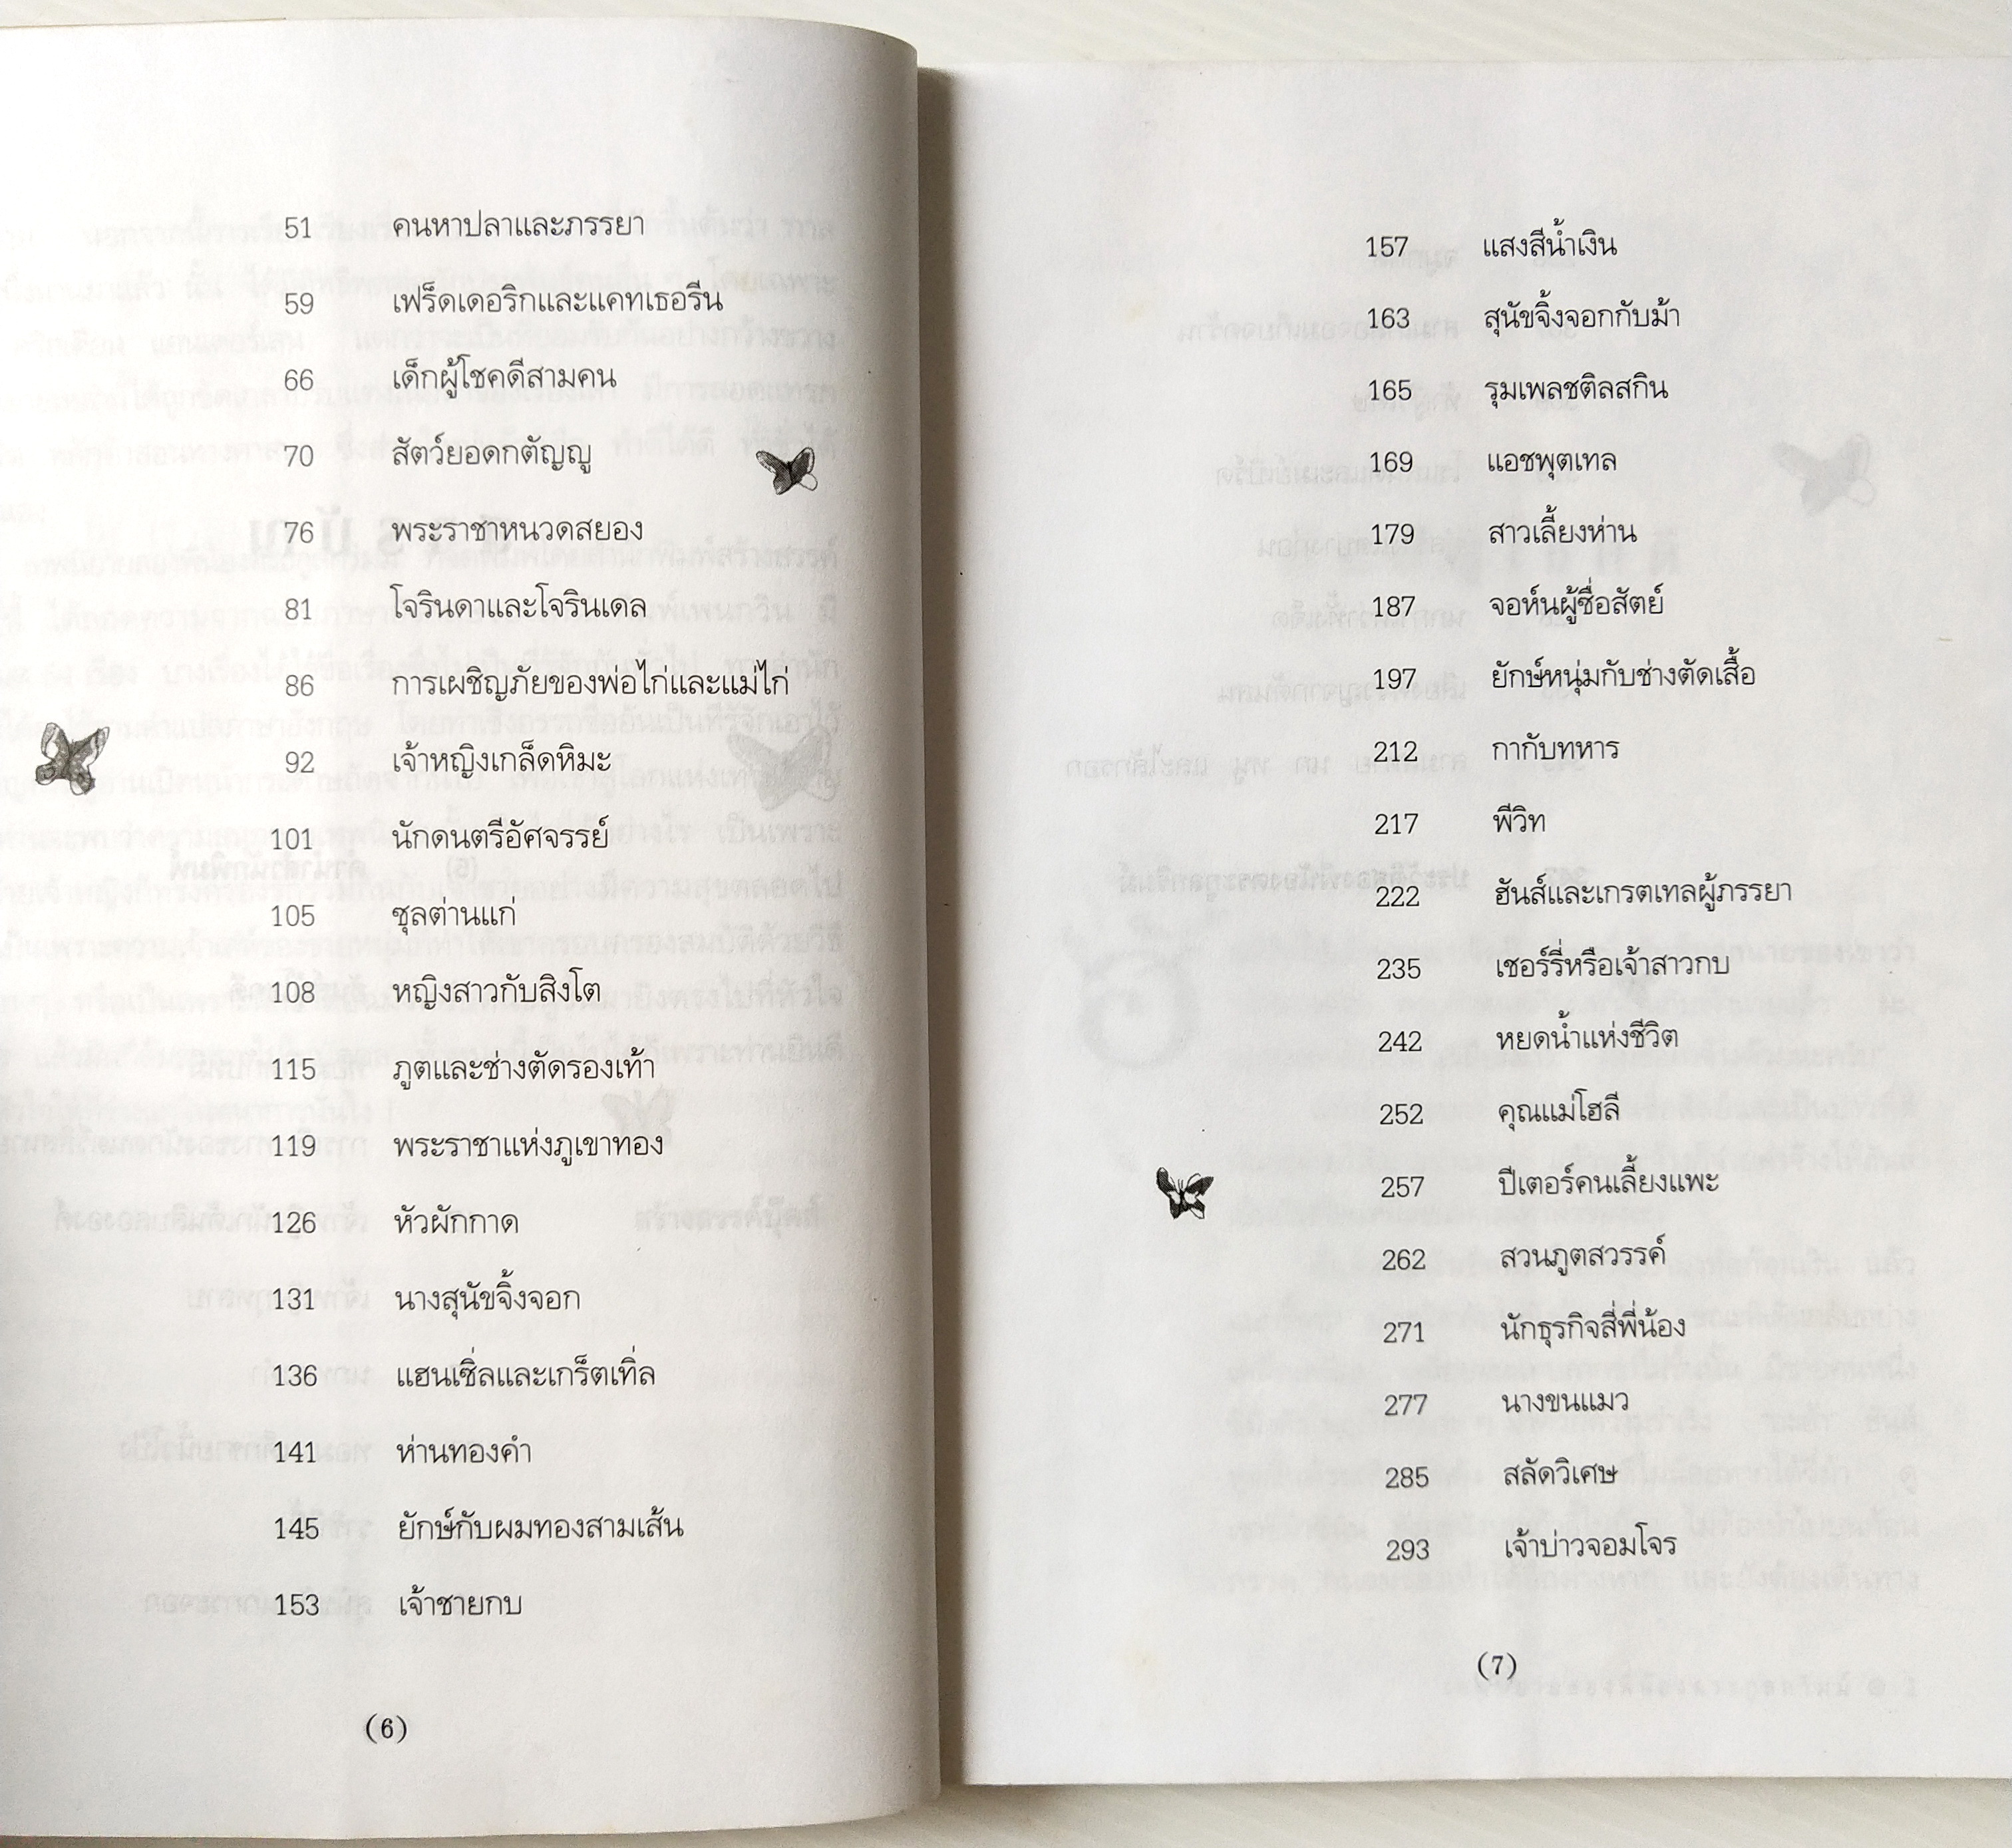 51 คนหาปลาและภรรยา
59 เฟร็ดเดอริกและแคทเธอรีน
66 เด็กผู้โชคดีสามคน
70 สัตว์ยอดกตัญญู
76 พระราชาหนวดสยอง
81 โจรินดาและโจรินเดล
86 การเผชิญภัยของพ่อไก่และแม่ไก่
92 เจ้าหญิงเกล็ดหิมะ
101 นักดนตรีอัศจรรย์
105 ชุลต่านแก่
108 หญิงสาวกับสิงโต
115 ภูตและช่างตัดรองเท้า
119 พระราชาแห่งภูเขาทอง
126 หัวผักกาด
131 นางสุนัขจิ้งจอก
136 แฮนเซิ่ลและเกร็ตเทิ่ล
141 ห่านทองคำ
145 ยักษ์กับผมทองสามเส้น
153 เจ้าชายกบ
(6)
157 แสงสีน้ำเงิน
163 สุนัขจิ้งจอกกับม้า
165 รุมเพลชติลสกิน
169 แอชพุตเทล
179 สาวเลี้ยงห่าน
187 จอห์นผู้ชื่อสัตย์
197 ยักษ์หนุ่มกับช่างตัดเสื้อ
212 กากับทหาร
217 พีวิท
222 ฮันส์และเกรตเทลผู้ภรรยา
235 เชอร์รี่หรือเจ้าสาวกบ
242 หยดน้ำแห่งชีวิต
252 คุณแม่โฮลี
257 ปีเตอร์คนเลี้ยงแพะ
262 สวนภูตสวรรค์
271 นักธุรกิจสี่พี่น้อง
277 นางขนแมว
285 สลัดวิเศษ
293 เจ้าบ่าวจอมโจร
(7)